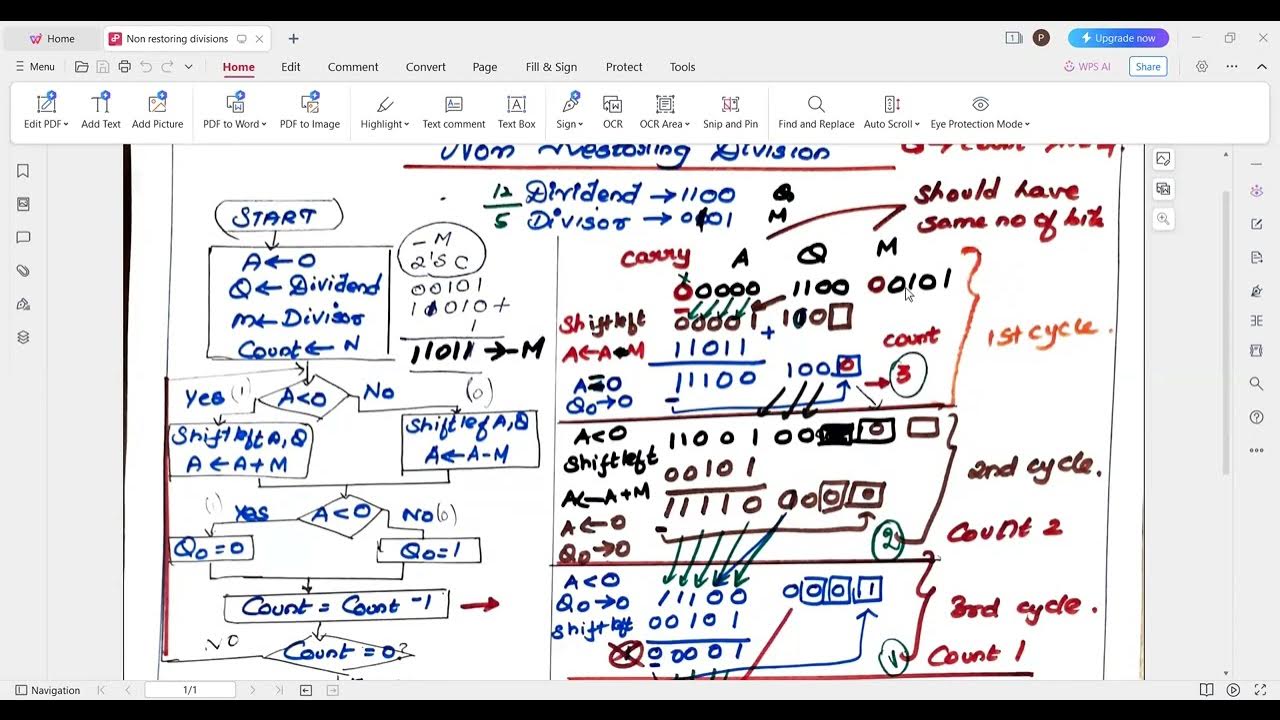 Home
Non restoring divisions
1
P
Upgrade now
Menu
Home
Edit
Comment
Convert
Page
Fill & Sign
Protect
Tools
WPS AI
Share
Edit PDF
Add Text
Add Picture
PDF to Word
PDF to Image
Highlight
Text comment
Text Box
Sign
OCR
OCR Area
Snip and Pin
Find and Replace
Auto Scroll
Eye Protection Mode
Non Restoring Division
12 Dividend → 1100 Q
5 Divisor → 0101 M
should have
same no of bits
START
A ← 0
Q ← Dividend
M ← Divisor
Count ← N
- M
2'S C
00101
11010 +
1
11011 → -M
Yes (1)
A<0
No (0)
Shift left A, Q
A ← A + M
Shift lef A, Q
A ← A - M
(1) Yes
A<0
No (0)
Q0 = 0
Q0 = 1
Count = Count - 1
No
Count = 0?
carry A Q M
00000 1100 00101
Shift left 00001 100
+
A ← A - M 11011
count
11100 100 0 → 3
A = 0
Q0 → 0
1st cycle.
A<0 11001 00 0
Shift left 00101
A ← A + M 11110 00 0 0
A ← 0
Q0 → 0
2
2nd cycle.
Count 2
A<0 11100 0 0 0 1
Q0 → 0 00101
Shift left
00001
1
3rd cycle.
Count 1
Navigation
1/1